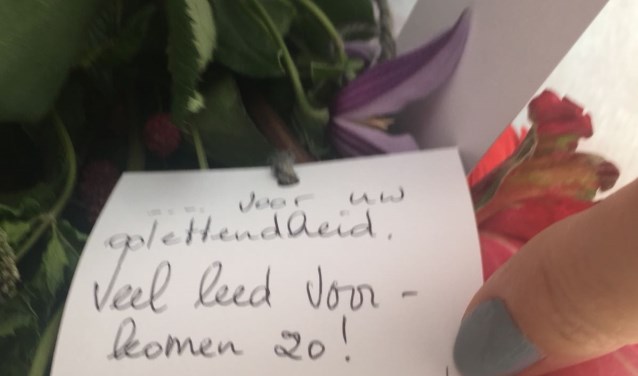 voor uw
oplettendheid.
Veel leed voor-
komen zo!